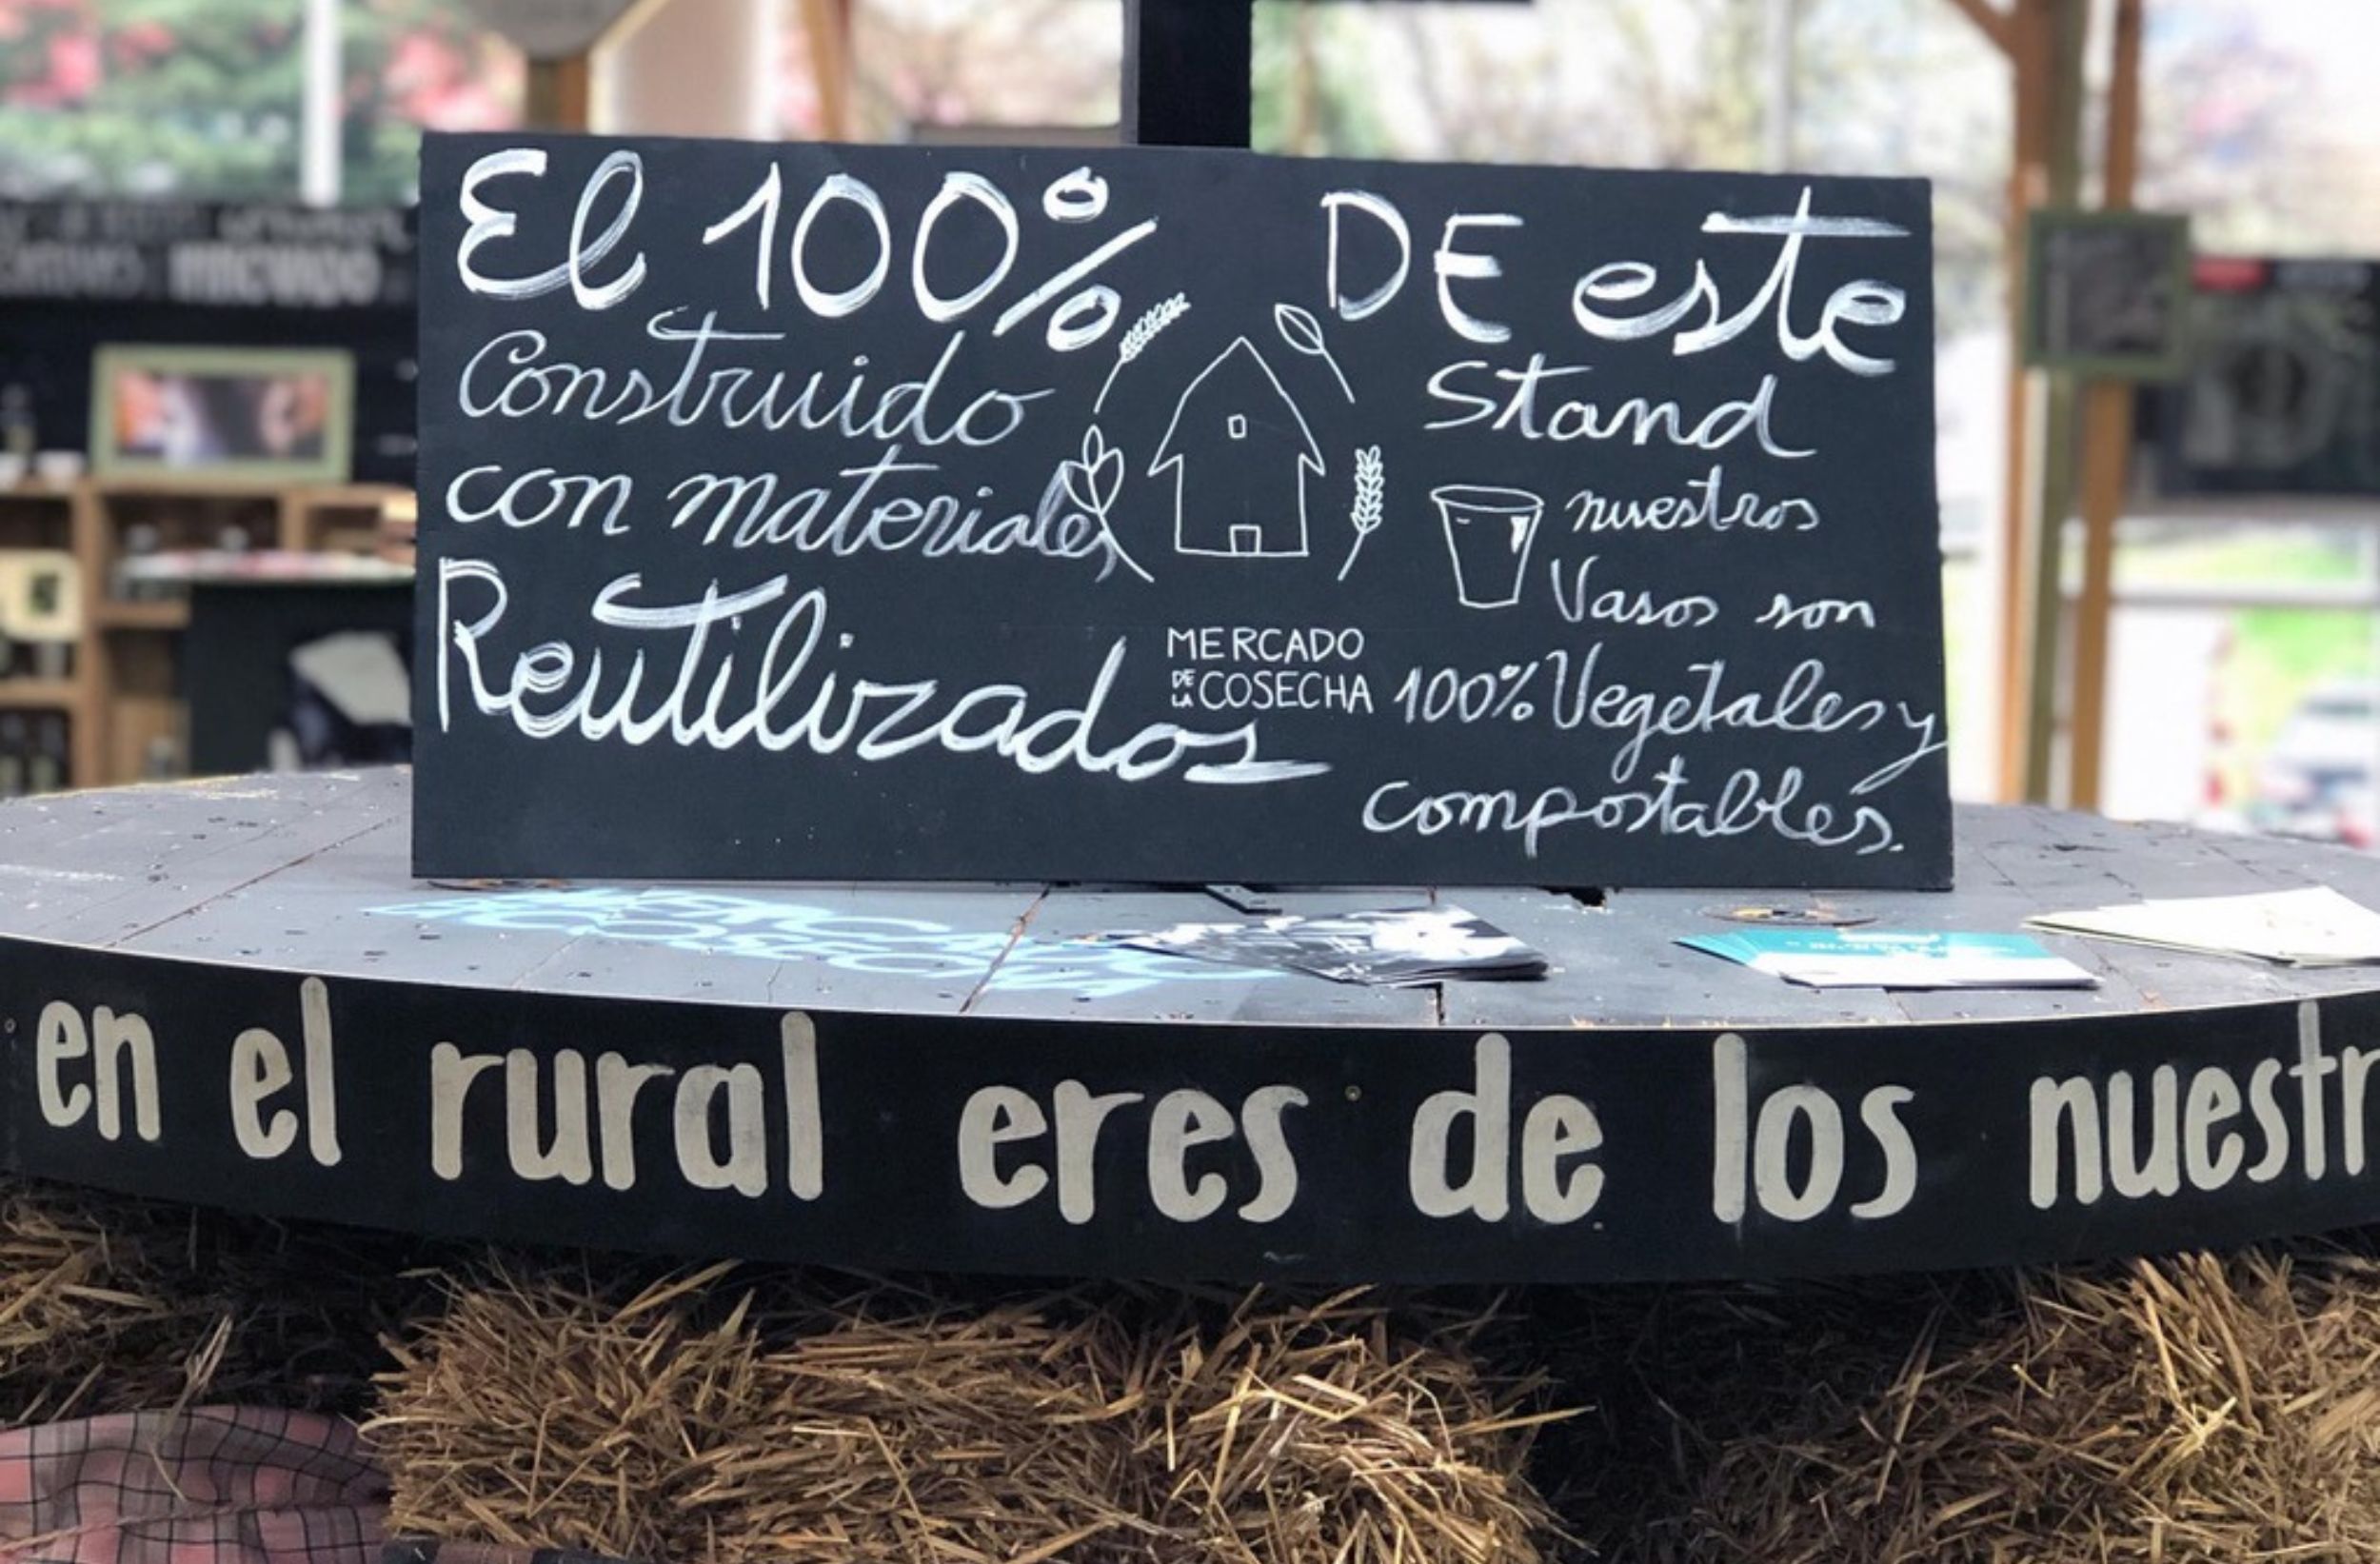 El 100% DE este
Construido
con materiales
Reutilizados
Stand
nuestros
Vasos son
100% Vegetales y
compostables.
MERCADO
DE LA COSECHA
MERCADO
DE LA COSECHA
en el rural eres de los nuestr